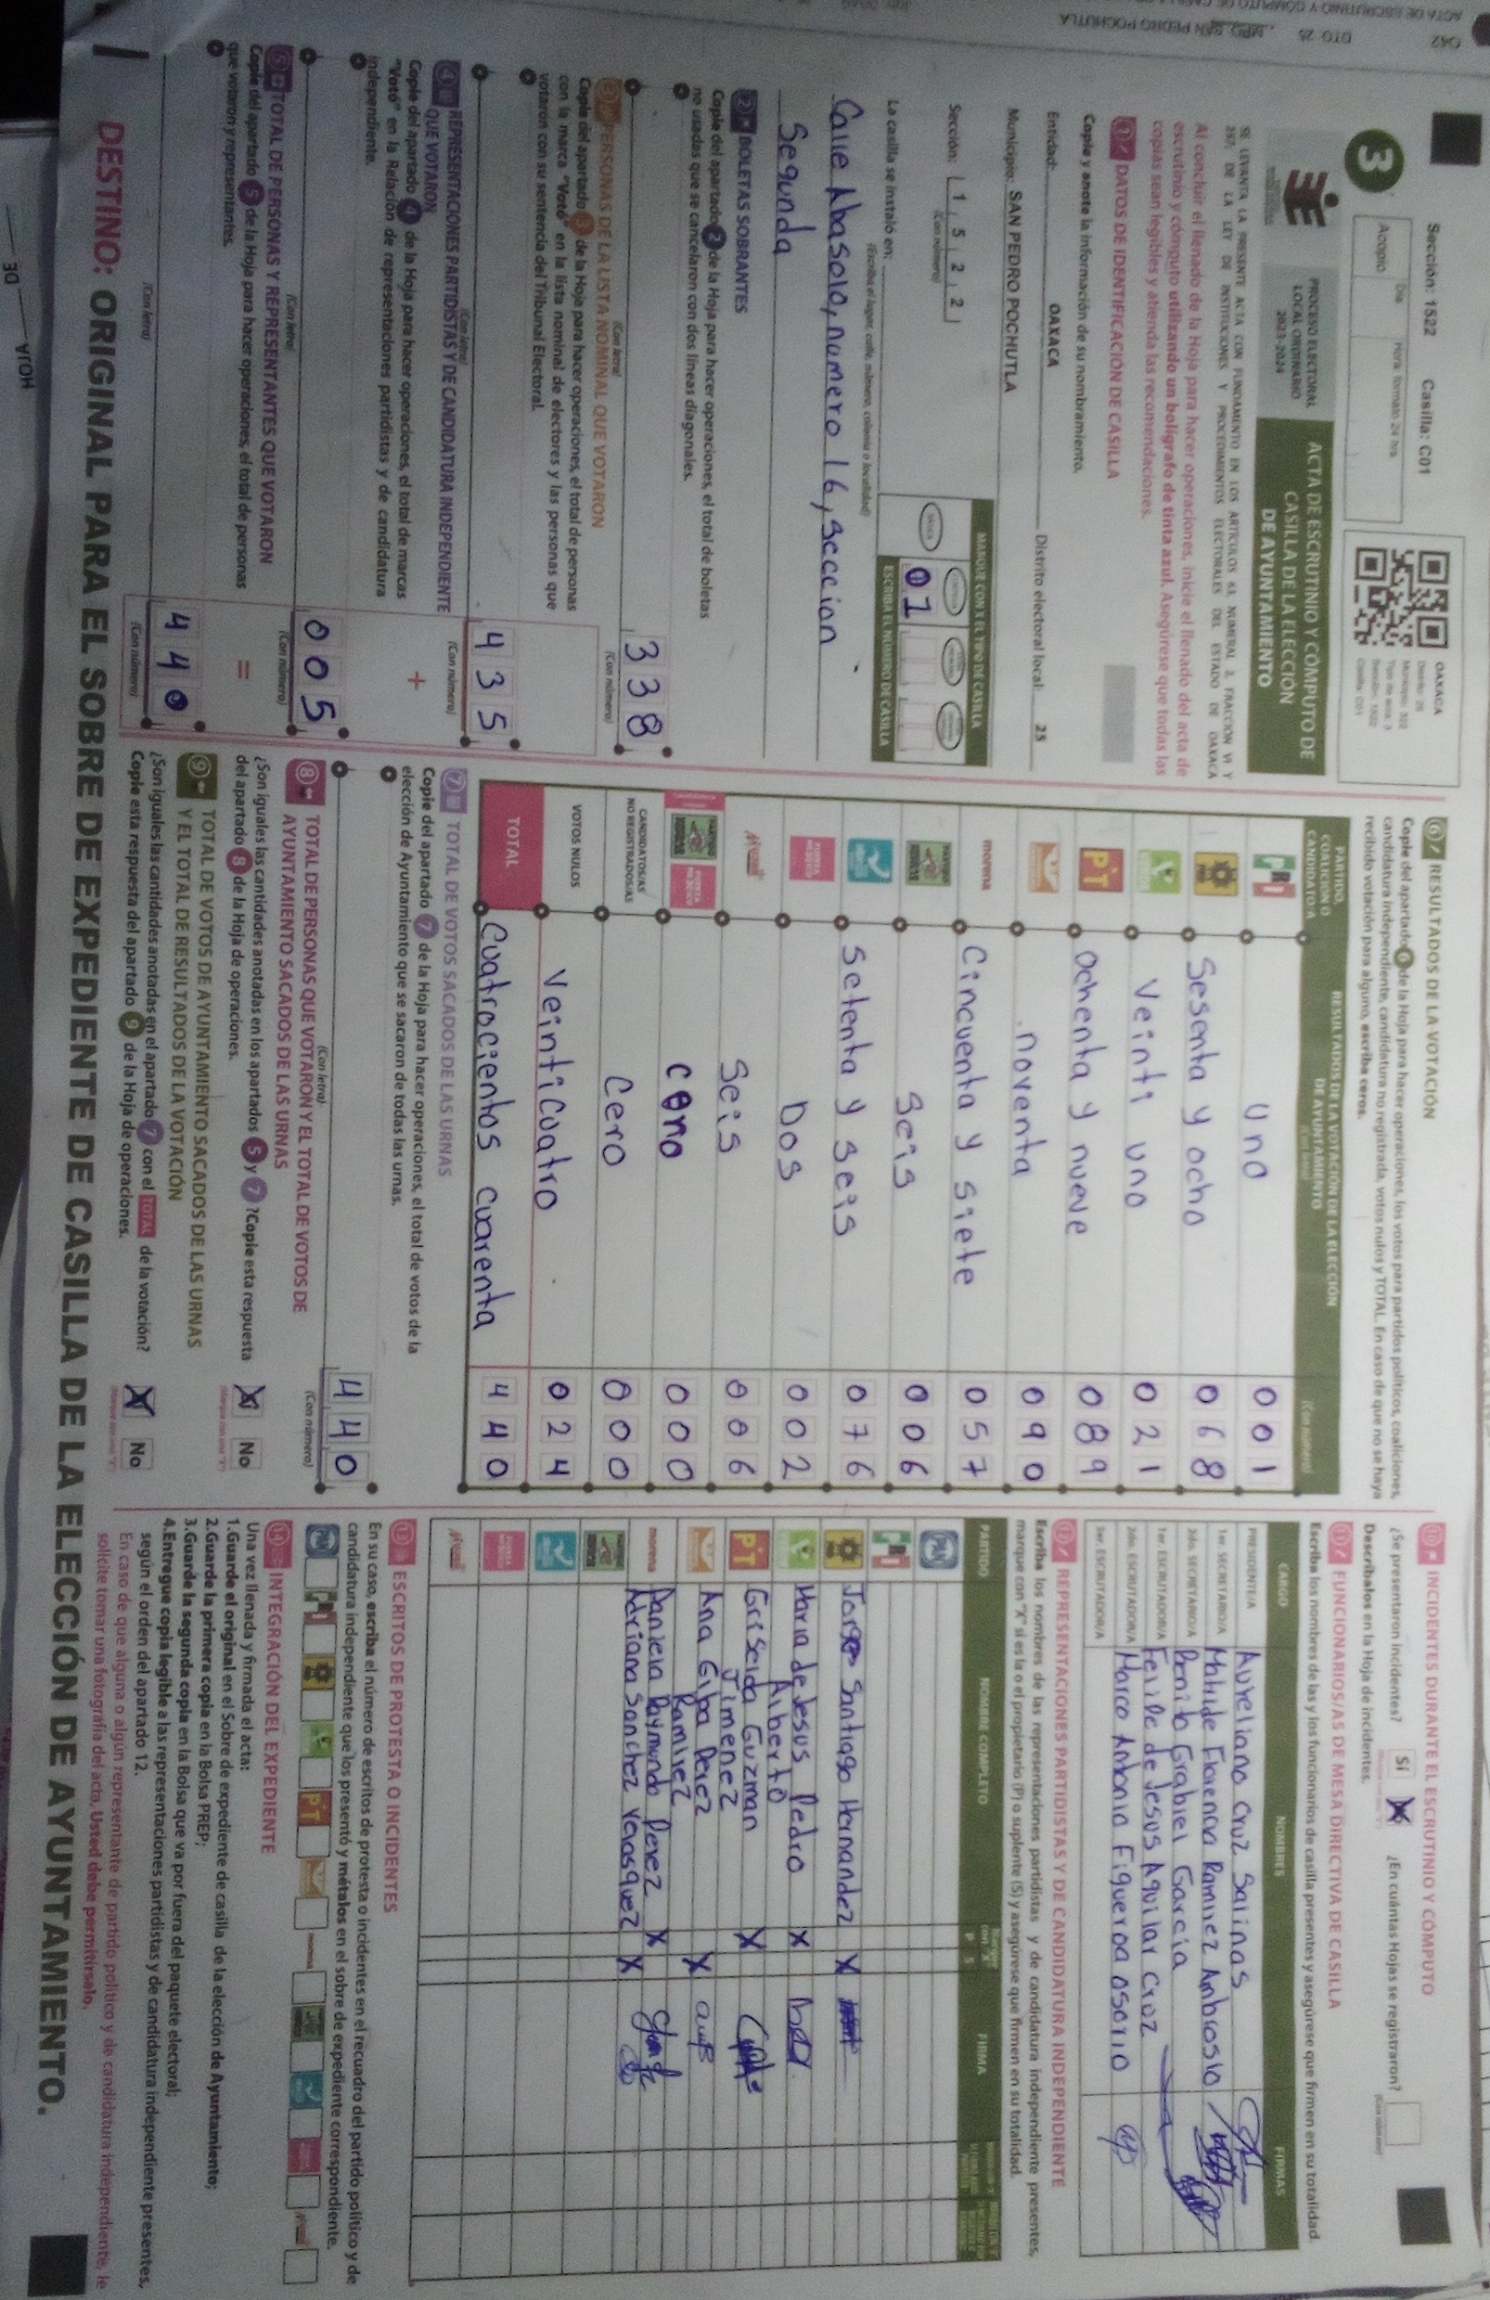 Sección: 1522 Casilla: C01
3
Acopio
Día
Hora: formato 24 hrs
PROCESO ELECTORAL
LOCAL ORDINARIO
2023-2024
ACTA DE ESCRUTINIO Y CÓMPUTO DE
CASILLA DE LA ELECCIÓN
DE AYUNTAMIENTO
OAXACA
SE LEVANTA LA PRESENTE ACTA CON FUNDAMENTO EN LOS ARTÍCULOS 63, NUMERAL 2, FRACCIÓN VI Y
257, DE LA LEY DE INSTITUCIONES Y PROCEDIMIENTOS ELECTORALES DEL ESTADO DE OAXACA
Al concluir el llenado de la Hoja para hacer operaciones, inicie el llenado del acta de
escrutinio y cómputo utilizando un bolígrafo de tinta azul. Asegúrese que todas las
copias sean legibles y atienda las recomendaciones.
1 DATOS DE IDENTIFICACIÓN DE CASILLA
Copie y anote la información de su nombramiento.
Entidad: OAXACA Distrito electoral local: 25
Municipio: SAN PEDRO POCHUTLA
Sección: 1 5 2 2
(Con número)
MARQUE CON X EL TIPO DE CASILLA
ESCRIBA EL NÚMERO DE CASILLA
01
La casilla se instaló en:
(Escriba el lugar, calle, número, colonia o localidad)
Calle Abasolo, numero 16, seccion
Segunda
2 BOLETAS SOBRANTES
Copie del apartado 2 de la Hoja para hacer operaciones, el total de boletas
no usadas que se cancelaron con dos líneas diagonales.
338
(Con letra) (Con número)
3 PERSONAS DE LA LISTA NOMINAL QUE VOTARON
Copie del apartado 3 de la Hoja para hacer operaciones, el total de personas
con la marca "Votó" en la lista nominal de electores y las personas que
votaron con su sentencia del Tribunal Electoral.
435
(Con letra) (Con número)
4 REPRESENTACIONES PARTIDISTAS Y DE CANDIDATURA INDEPENDIENTE
QUE VOTARON
Copie del apartado 4 de la Hoja para hacer operaciones, el total de marcas
"Votó" en la Relación de representaciones partidistas y de candidatura
independiente.
+
005
(Con letra) (Con número)
5 TOTAL DE PERSONAS Y REPRESENTANTES QUE VOTARON
Copie del apartado 5 de la Hoja para hacer operaciones, el total de personas
que votaron y representantes.
=
440
(Con letra) (Con número)
6 RESULTADOS DE LA VOTACIÓN
Copie del apartado 6 de la Hoja para hacer operaciones, los votos para partidos políticos, coaliciones,
candidatura independiente, candidatura no registrada, votos nulos y TOTAL. En caso de que no se haya
recibido votación para alguno, escriba ceros.
PARTIDO,
COALICIÓN O
CANDIDATO/A
RESULTADOS DE LA VOTACIÓN DE LA ELECCIÓN
DE AYUNTAMIENTO
(Con letra) (Con número)
PRI Uno 001
Sesenta y ocho 068
Veinti uno 021
PT ochenta y nueve 089
noventa 090
morena Cincuenta y siete 057
Seis 006
Setenta y seis 076
Dos 002
Seis 006
cero 000
CANDIDATOS/AS
NO REGISTRADOS/AS
Cero 000
VOTOS NULOS Veinticuatro 024
TOTAL Cuatrocientos cuarenta 440
7 TOTAL DE VOTOS SACADOS DE LAS URNAS
Copie del apartado 7 de la Hoja para hacer operaciones, el total de votos de la
elección de Ayuntamiento que se sacaron de todas las urnas.
440
(Con letra) (Con número)
8 TOTAL DE PERSONAS QUE VOTARON Y EL TOTAL DE VOTOS DE
AYUNTAMIENTO SACADOS DE LAS URNAS
¿Son iguales las cantidades anotadas en los apartados 5 y 7? Copie esta respuesta
del apartado 8 de la Hoja de operaciones.
No
9 TOTAL DE VOTOS DE AYUNTAMIENTO SACADOS DE LAS URNAS
Y EL TOTAL DE RESULTADOS DE LA VOTACIÓN
¿Son iguales las cantidades anotadas en el apartado 7 con el TOTAL de la votación?
Copie esta respuesta del apartado 9 de la Hoja de operaciones.
No
10 INCIDENTES DURANTE EL ESCRUTINIO Y CÓMPUTO
¿Se presentaron incidentes? Sí ¿En cuántas Hojas se registraron?
Descríbalos en la Hoja de incidentes.
11 FUNCIONARIOS/AS DE MESA DIRECTIVA DE CASILLA
Escriba los nombres de las y los funcionarios de casilla presentes y asegúrese que firmen en su totalidad.
CARGO NOMBRES FIRMAS
PRESIDENTE/A Aureliano Cruz Salinas
1er. SECRETARIO/A Matilde Florencia Ramirez Ambrosio
2do. SECRETARIO/A Benito Grabiel Garcia
1er. ESCRUTADOR/A Felipe de Jesus Aguilar Cruz
2do. ESCRUTADOR/A Marco Antonio Figueroa Osorio
3er. ESCRUTADOR/A
12 REPRESENTACIONES PARTIDISTAS Y DE CANDIDATURA INDEPENDIENTE
Escriba los nombres de las representaciones partidistas y de candidatura independiente presentes,
marque con "X" si es la o el propietario (P) o suplente (S) y asegúrese que firmen en su totalidad.
PARTIDO NOMBRE COMPLETO FIRMA
PAN
PRI
Jorge Santiago Hernandez X
Maria de Jesus Pedro X
Alberto
PT Griselda Guzman X
Jimenez
Ana Gipa Perez X
Ramirez
morena Daniela Raymundo Perez X
Adriana Sanchez Verasquez X
13 ESCRITOS DE PROTESTA O INCIDENTES
En su caso, escriba el número de escritos de protesta o incidentes en el recuadro del partido político y de
candidatura independiente que los presentó y métalos en el sobre de expediente correspondiente.
14 INTEGRACIÓN DEL EXPEDIENTE
Una vez llenada y firmada el acta:
1.Guarde el original en el Sobre de expediente de casilla de la elección de Ayuntamiento;
2.Guarde la primera copia en la Bolsa PREP;
3.Guarde la segunda copia en la Bolsa que va por fuera del paquete electoral;
4.Entregue copia legible a las representaciones partidistas y de candidatura independiente presentes,
según el orden del apartado 12.
En caso de que alguna o algún representante de partido político y de candidatura independiente, le
solicite tomar una fotografía del acta, Usted debe permitírselo.
DESTINO: ORIGINAL PARA EL SOBRE DE EXPEDIENTE DE CASILLA DE LA ELECCIÓN DE AYUNTAMIENTO.
HOJA
DE